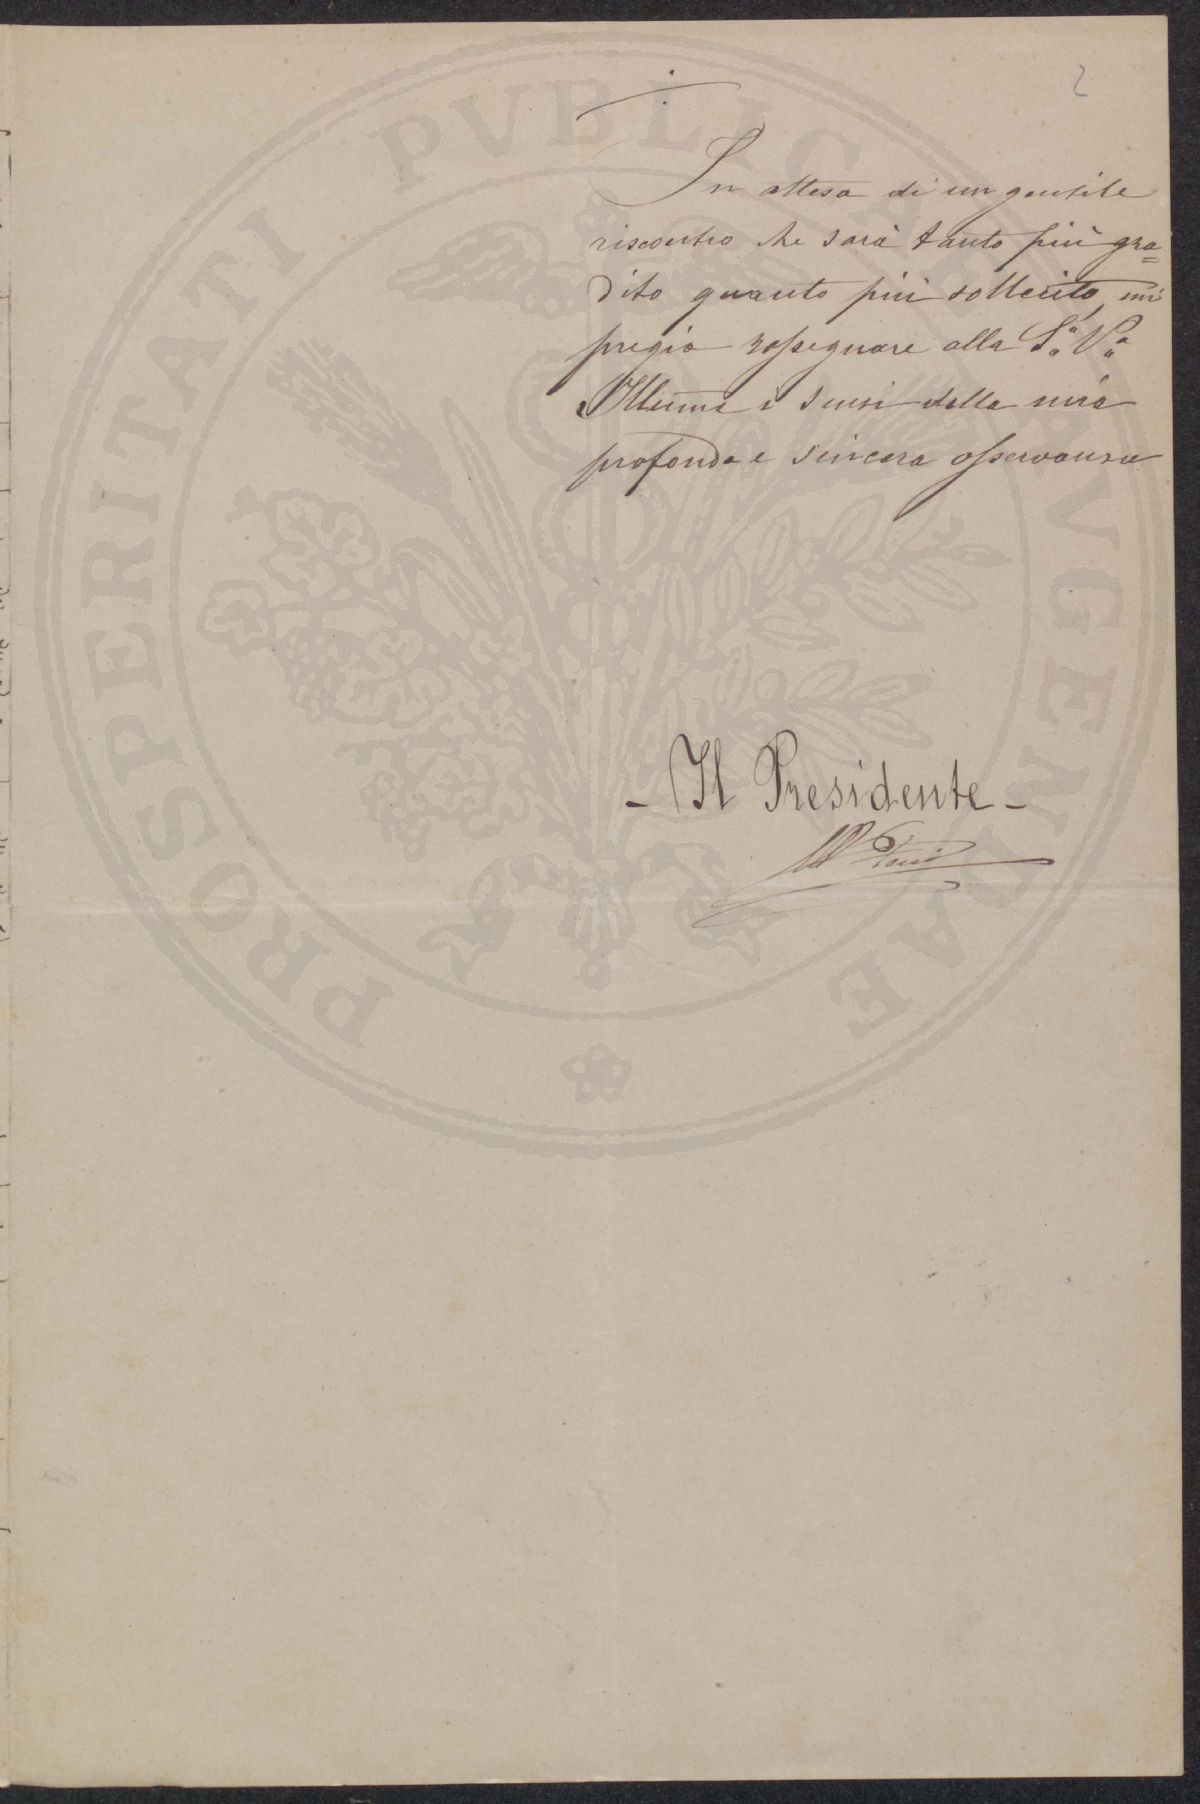 2
In attesa di un gentile
riscontro che sarà tanto più gra=
dito quanto più sollecito, mi
pregio rassegnare alla S.a V.a
Illuma i sensi della mia
profonda e sincera osservanza
- Il Presidente -
PROSPERITATI PVBLICAE AVGENDAE